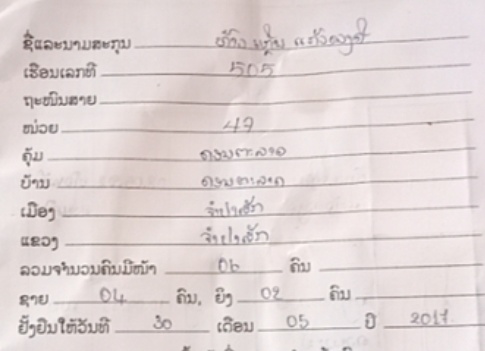 ຊື່ແລະນາມສະກຸນ ທ້າວ
ເຮືອນເລກທີ 505
ຖະໜົນສາຍ
ໜ່ວຍ 49
ຄຸ້ມ ດອນຕະລາດ
ບ້ານ ດອນຕາລາດ
ເມືອງ ຈຳປາສັກ
ແຂວງ ຈຳປາສັກ
ລວມຈຳນວນຄົນມີໜ້າ 06 ຄົນ
ຊາຍ 04 ຄົນ, ຍິງ 02 ຄົນ
ຢັ້ງຢືນໃຫ້ວັນທີ 30 ເດືອນ 05 ປີ 2017